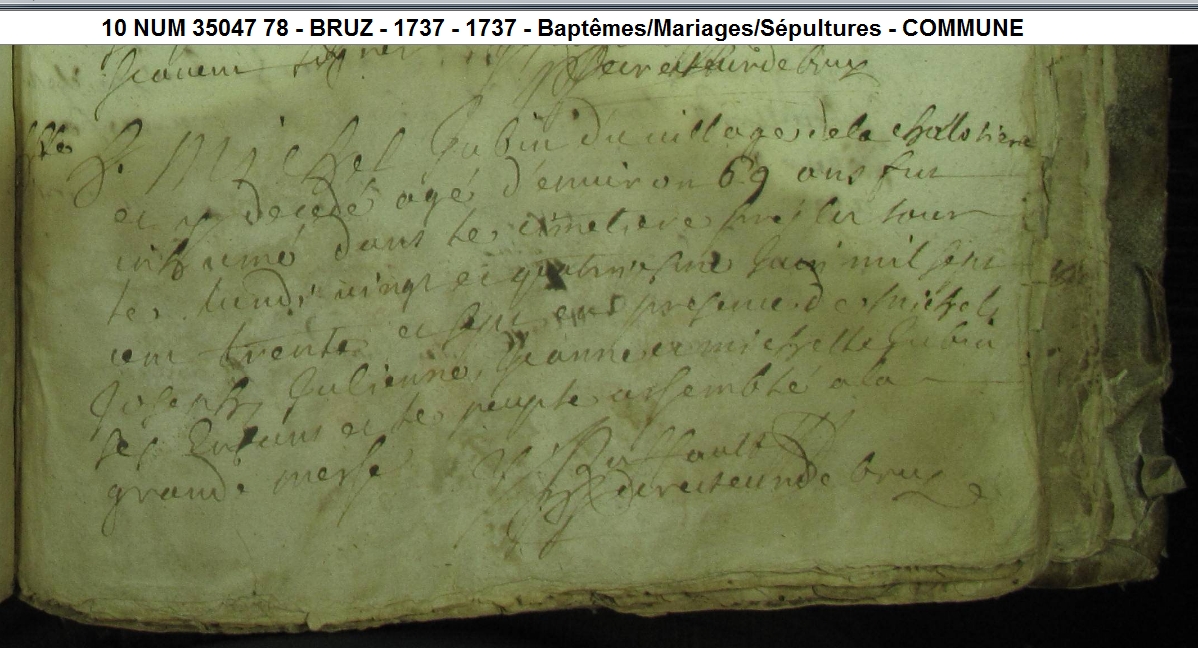 10 NUM 35047 78 - BRUZ - 1737 - 1737 - Baptêmes/Mariages/Sépultures - COMMUNE
recteur de bruz
S. Michel Gubin du village de la
et y decedé agé d'environ 69 ans fut
inhumé dans le cimetiere
le lundi vingt et quatriesme juin mil sept
cent trente et sept en presence de Michel,
Joseph, Julienne, Jeanne et michelle Gubin
ses Enfans et le peuple assemblé a la
grande messe
recteur de bruz